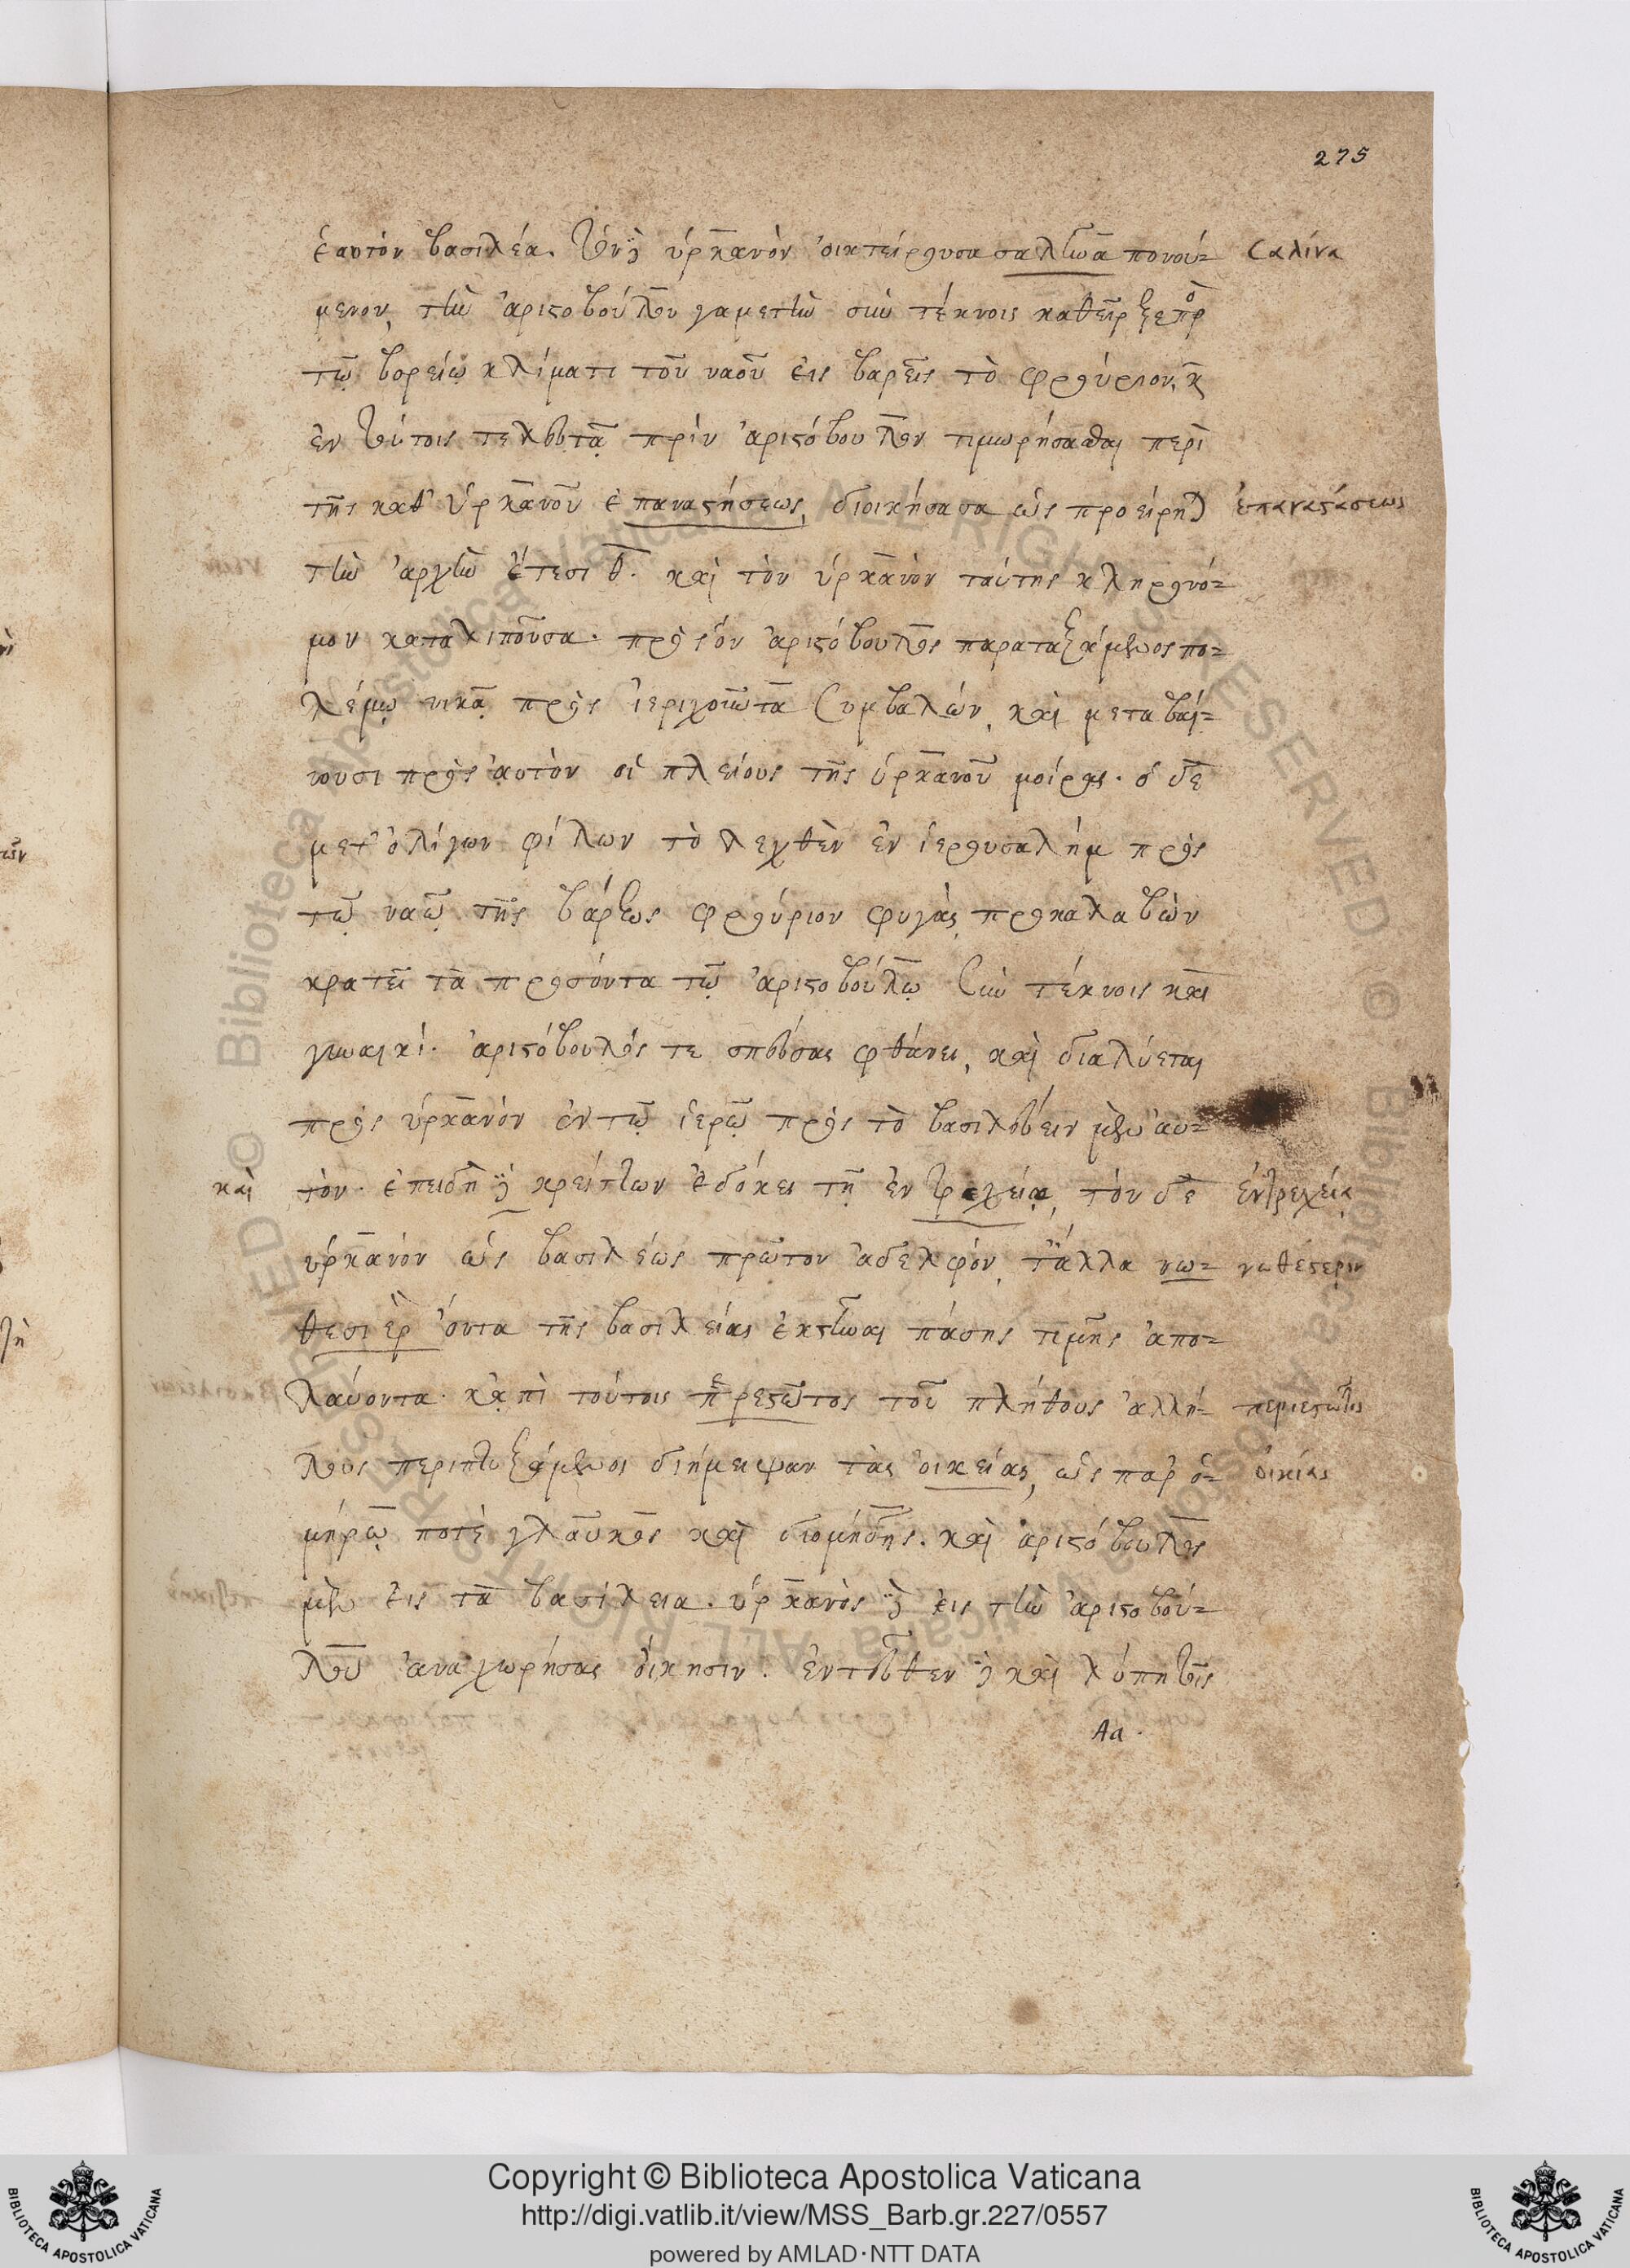 275
ἑαυτόν βασιλέα. τὸν δὲ ὑρκανὸν οἰκτείρουσα σαλήνα πονού- Σαλίνα
μενον, τὴν ἀριστοβούλου γαμετὴν σὺν τέκνοις καθεῖρξε πρὸ
τῷ βορείῳ κλίματι τοῦ ναοῦ εἰς βαρεῖς τὸ φρούριον, καὶ
ἐν τούτοις τελευτᾷ πρὶν ἀριστόβουλον τιμωρήσασθαι περὶ
τῆς καθ' ὑρκανοῦ ἐπαναστήσεως, διοικήσασα ὡς προείρηται ἐπαναστάσεως
τὴν ἀρχὴν ἔτεσι θ. καὶ τὸν ὑρκανὸν ταύτης κληρονό-
μον καταλιποῦσα. πρὸς ὃν ἀριστόβουλος παραταξάμενος πο-
λέμῳ νικᾷ πρὸς ἱεριχοῦντα συμβαλών, καὶ μεταβαί-
νουσι πρὸς αὐτὸν οἱ πλείους τῆς ὑρκανοῦ μοίρας. ὁ δὲ
μετ' ὀλίγων φίλων τὸ λεχθὲν ἐν ἱερουσαλήμ πρὸς
τῷ ναῷ τῆς βάρεως φρούριον φυγὰς προκαλαβὼν
κρατεῖ τὰ προσόντα τῷ ἀριστοβούλῳ σὺν τέκνοις καὶ
γυναικί. ἀριστόβουλός τε σπεύσας φθάνει, καὶ διαλύεται
πρὸς ὑρκανὸν ἐν τῷ ἱερῷ πρὸς τὸ βασιλεύειν μὲν αὐ-
καὶ τὸν. ἐπειδὴ δὲ κρείττων ἐδόκει τῇ ἐντρεχείᾳ, τὸν δὲ ἐντρεχείᾳ
ὑρκανὸν ὡς βασιλέως πρῶτον ἀδελφόν, τἄλλα νω- νωθέστερον
θεσιὲρ ὄντα τῆς βασιλείας ἐκστῆναι πάσης τιμῆς ἀπο-
λαύοντα. κἀπὶ τούτοις περεστῶτος τοῦ πλήθους ἀλλή- περιεστῶτος
λους περιπτυξάμενοι διήμειψαν τὰς οἰκείας, ὡς παρ' ὁ- οἰκίας
μήρῳ ποτὲ γλαῦκος καὶ διομήδης. καὶ ἀριστόβουλος
μὲν εἰς τὰ βασίλεια. ὑρκανὸς δὲ εἰς τὴν ἀριστοβού-
λου ἀναχωρήσας οἴκησιν. ἐντεῦθεν δὲ καὶ λύπη τις
Αα.
Copyright © Biblioteca Apostolica Vaticana
http://digi.vatlib.it/view/MSS_Barb.gr.227/0557
powered by AMLAD·NTT DATA